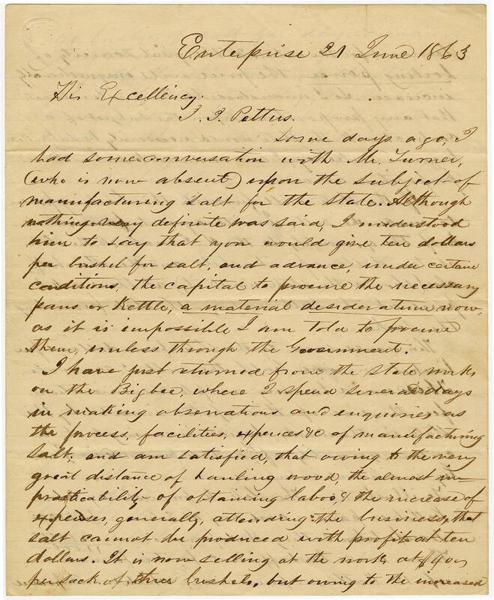 Enterprise 21 June 1863
His Excellency.
J. J. Pettus.
Some days ago, I
had some conversation with Mr. Turner,
(who is now absent) upon the subject of
manufacturing salt for the State. Although
nothing very definite was said, I understood
him to say that you would give ten dollars
per bushel for salt, and advance, under certain
conditions, the capital to procure the necessary
pans or Kettle, a material desideratum now,
as it is impossible I am told to procure
them, unless through the Government.
I have just returned from the State works
on the Bigbee, where I spend several days
in making observations and enquiries as
the process, facilities, expences &c of manufacturing
salt, and am satisfied, that owing to the very
great distance of hauling wood, the almost im-
practicability of obtaining labor & the increase of
expenses, generally, attending the business, that
salt cannot be produced with profit at ten
dollars. It is now selling at the works at $
per sack of three bushels, but owing to the increased